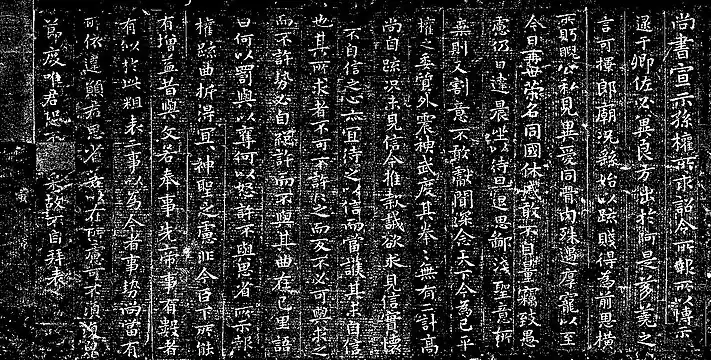 尚書宣示孫權所求詔令所報所以博示
逮于卿佐必冀良方出於阿是芻蕘之
言可擇郎廟況繇始以疏賤得為前恩橫
所盱睨公私見異愛同骨肉殊遇厚寵以至
今日再世榮名同國休慼敢不自量竊致愚
慮仍日達晨坐以待旦退思鄙淺聖意所
棄則又割意不敢獻聞深念天下今為已平
權之委質外震神武度其拳々無有二計高
尚自疏況未見信今推款誠欲求見信實懷
不自信之心亦宜待之以信而當護其未自信
也其所求者不可不許許之而反不必可與求之
而不許勢必自絕許而不與其曲在己里語
曰何以罰與以奪何以怒許不與思省所示報
權疏曲折得宜宜神聖之慮非今臣下所能
有增益昔與文若奉事先帝事有數者
有似於此粗表二事以為今者事勢尚當有
所依違願君思省若以在所慮可不須復
節度唯君恐不采故不自拜表